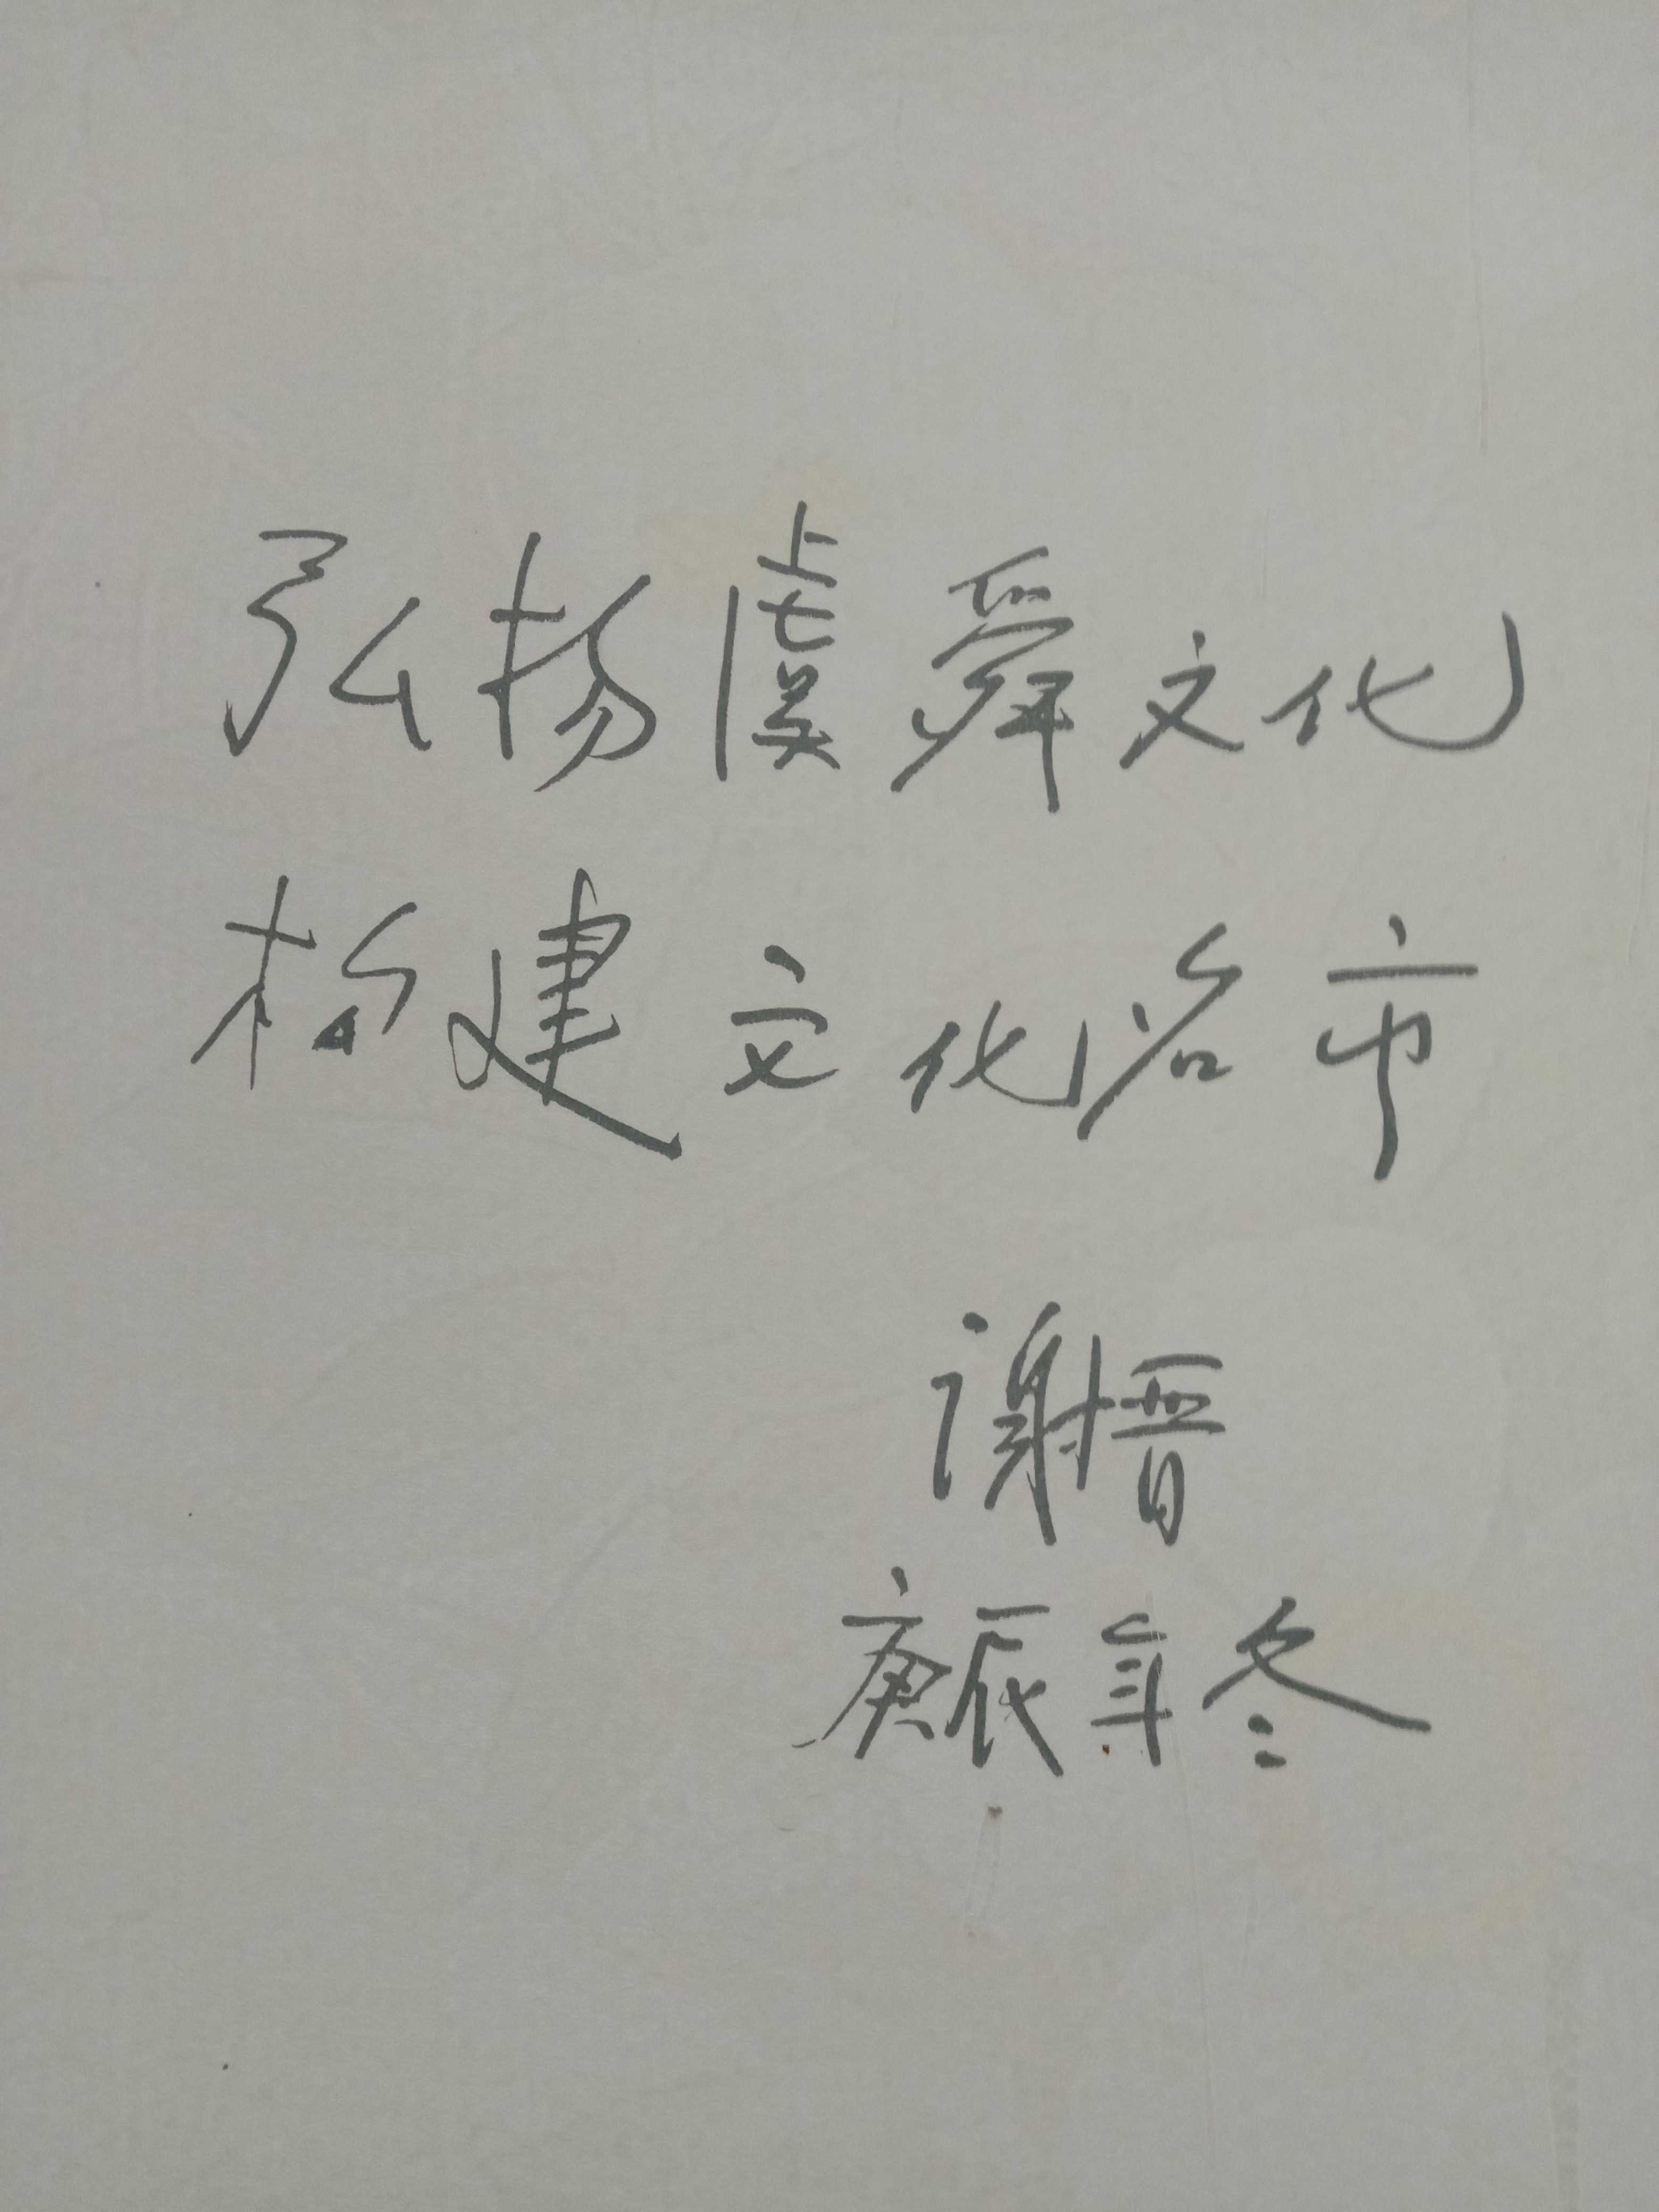 弘扬虞舜文化
构建文化名市
谢晋
庚辰年冬